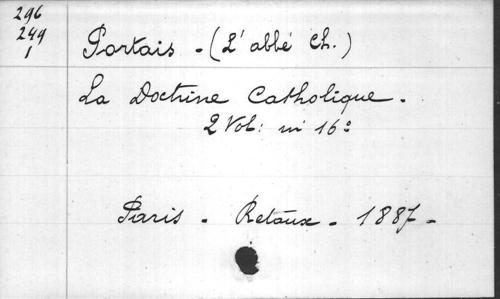 296
249
1
Portais - (L'abbé Ch.)
La Doctrine Catholique.
2 Vol: in 16º
Paris - Retaux - 1887 -